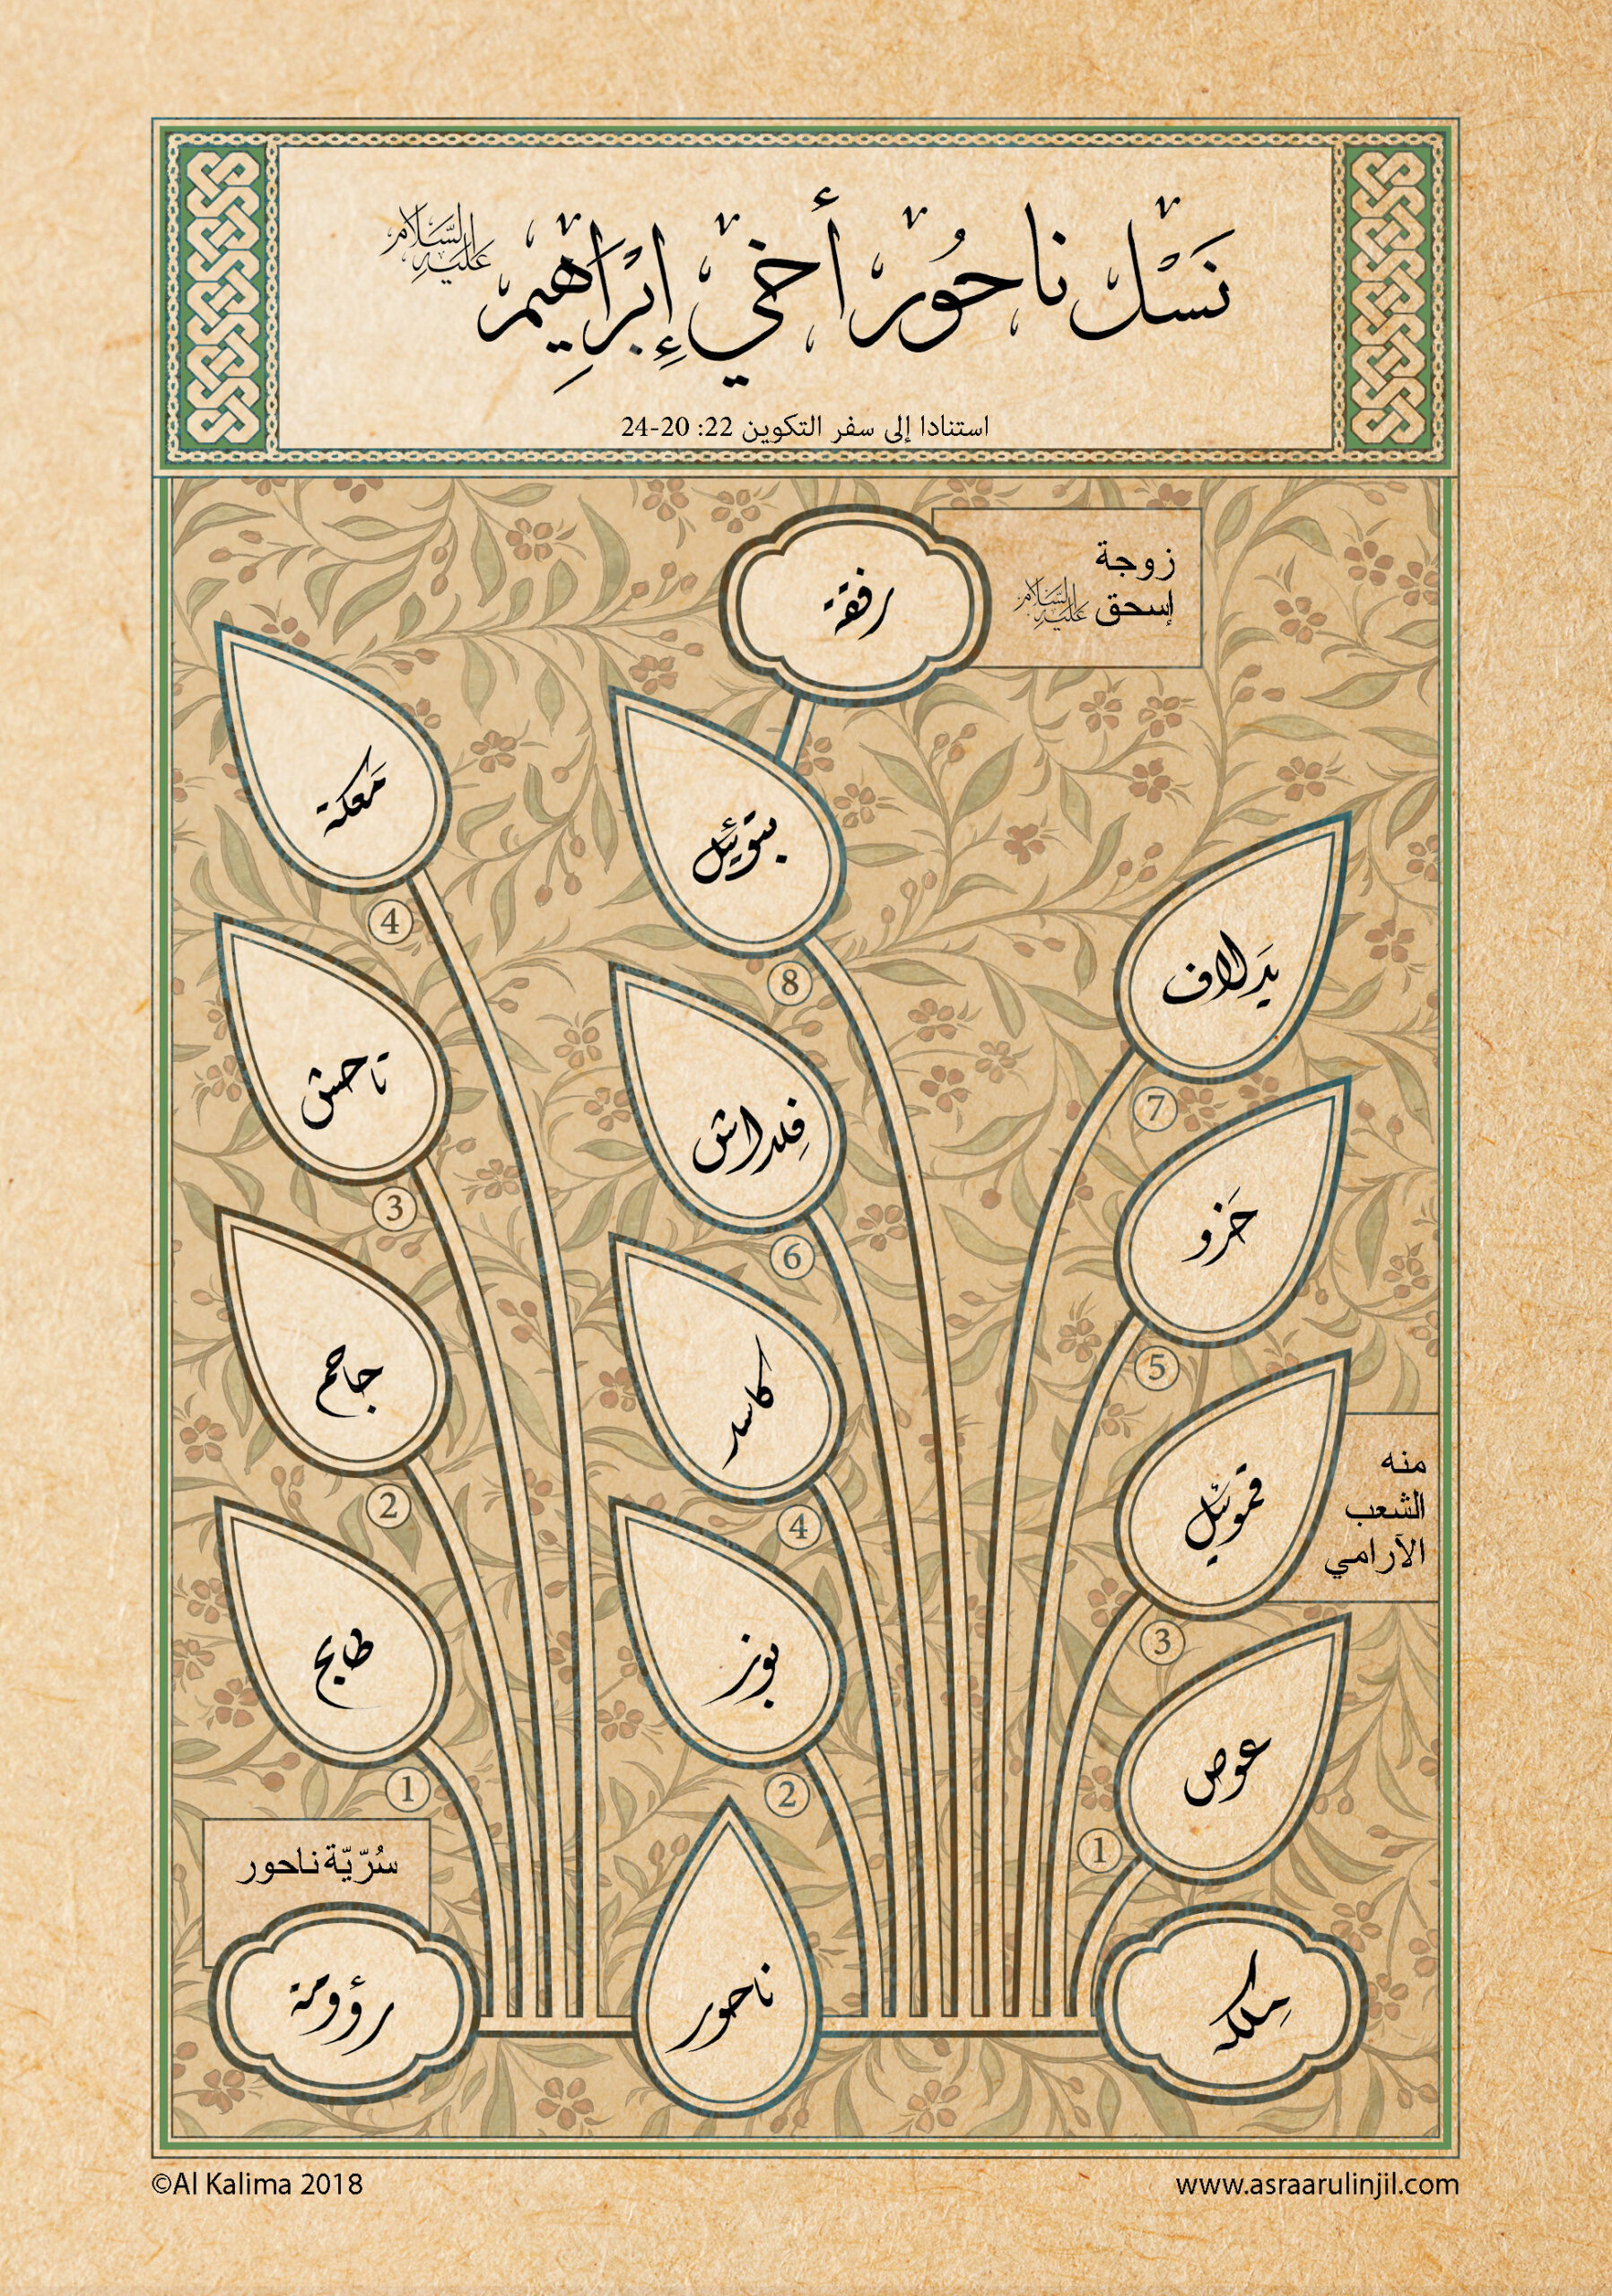 نَسْل ناحُور أخي إِبْرَاهِيم عليه السَّلام
استنادا إلى سفر التكوين 22: 20-24
رفقة
زوجة
إسحق عليه السَّلام
مَعكة
4
بتوئيل
8
يَدلاف
7
تاحش
3
فِلداش
6
حَزو
5
جاحم
2
كاسد
4
قموئيل
3
منه
الشعب
الآرامي
طابح
1
بوز
2
عوص
1
سُرّيّة ناحور
رؤومة
ناحور
مِلكه
©Al Kalima 2018
www.asraarulinjil.com